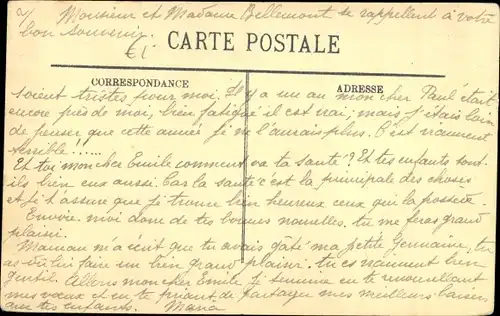 2/ Monsieur et Madame Bellemont se rappellent à votre
bon souvenir.
CARTE POSTALE
CORRESPONDANCE
ADRESSE
soient tristes pour moi. Il y a un an mon cher Paul était
encore près de moi, bien fatigué il est vrai, mais j'étais loin
de penser que cette année je ne l'aurais plus. C'est vraiment
terrible!!.....
Et toi mon cher Emile comment va ta santé? Et tes enfants sont-
ils bien eux aussi. Car la santé c'est la principale des choses
et je t'assure que je trouve bien heureux ceux qui la possède.
Envoie moi donc de tes bonnes nouvelles. tu me feras grand
plaisir.
Maman m'a écrit que tu avais gâté ma petite Germaine, tu
as dû lui faire un bien grand plaisir. tu es vraiment bien
gentil. Allons mon cher Emile je termine en te renouvellant
mes vœux et en te priant de partager mes meilleurs baisers
avec tes enfants. Maria